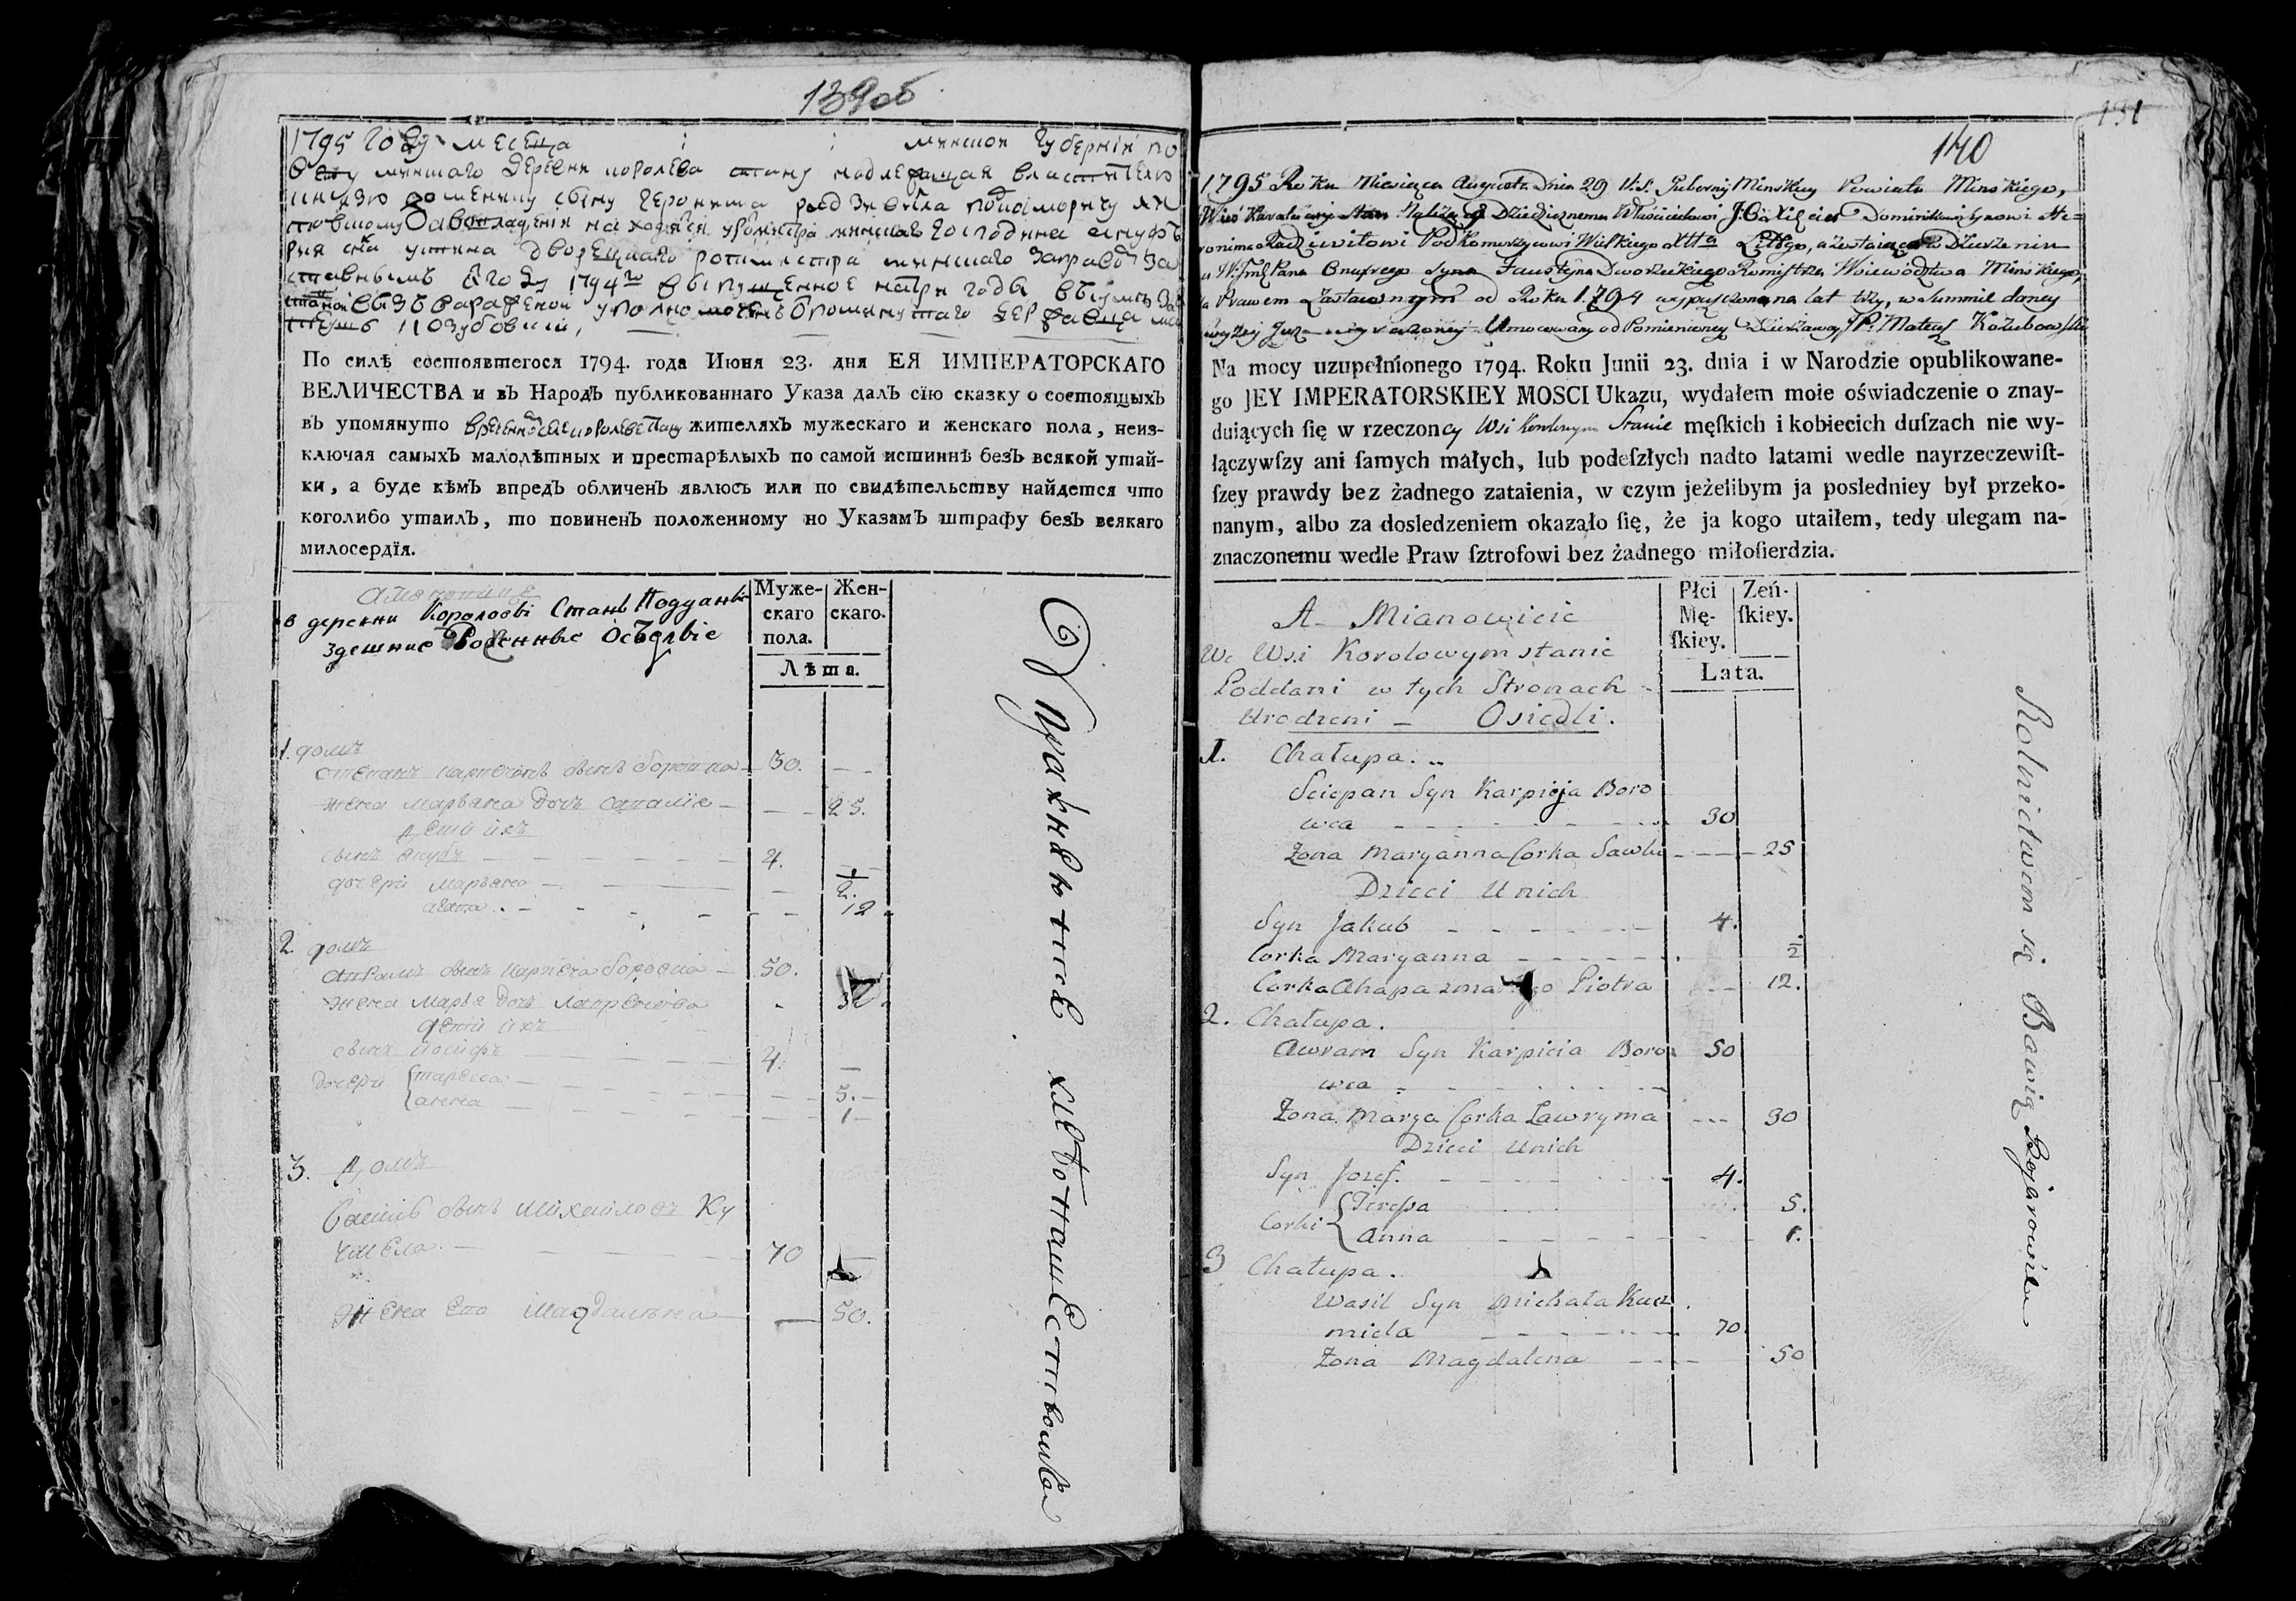 139об
1795 году месеца : : минской губернїи по
вету минского деревня королева стану надлежащая властителю
князю доменику сыну героныма радзивила подкоморичу ли
По силѣ состоявшегося 1794. года Июня 23. дня ЕЯ ИМПЕРАТОРСКАГО
ВЕЛИЧЕСТВА и въ Народъ публикованнаго Указа далъ сїю сказку о состоящыхъ
въ упомянуто жителяхъ мужескаго и женскаго пола, неиз-
ключая самыхъ малолѣтныхъ и престарѣлыхъ по самой истиннѣ безъ всякой утай-
ки, а буде кѣмъ впредъ обличенъ явлюсь или по свидѣтельству найдется что
коголибо утаилъ, то повиненъ положенному но Указамъ штрафу безъ всякаго
милосердїя.
а имянно
в деревни Королосві Станѣ Подданыѣ
здешние Рожденные Осѣдлые
Муже- Жен-
скаго скаго.
пола.
Лѣта.
1. домъ
степанъ карпеювъ сынъ боровка 30.
жена марьяна дочь савалие 25.
дети ихъ
сынъ якубъ 4.
дочери марьяна 2.
агапа 12
2. домъ
аврамъ сынъ карпеча боровка 50.
жена марья дочь лавренова 30
дети ихъ
сынъ иосифъ 4.
дочери тареса 5.
анна 1
3. домъ
василь сынъ михайловъ Ку
чмела 70
жена его магдалена 50.
Упражняютсѣ хлѣбопашествомъ
131
140
1795 Roku Miesiąca Augusta Dnia 29 V.S. Guberny Minskiey Powiatu Minskiego,
Wieś Karalowy Stan Należąca Dziedzicznemu Właścicielowi J.O. Xięciu Dominikowi Synowi He-
ronima Radziwiłowi Podkomorzycowi Wielkiego Xtta Littgo, a zostaiąca w Dzierżeniu
u W. Jmć Pana Onufrego Syna Faustyna Dworzeckiego Rotmistrza Woiewodztwa Minskiego,
a Prawem Zastawnym od Roku 1.794 wypuszczona na lat trzy, w Summie daney
wyżej Juz wyrażoney. Umocowany od Pomienioney Dzierżawy JP. Mateusz Kozubowski
Na mocy uzupełnionego 1794. Roku Junii 23. dnia i w Narodzie opublikowane-
go JEY IMPERATORSKIEY MOSCI Ukazu, wydałem moie oświadczenie o znay-
duiących ſię w rzeczoney Wsi Korolowym Stanie męſkich i kobiecich duſzach nie wy-
łączywſzy ani ſamych małych, lub podeſzłych nadto latami wedle nayrzeczewiſt-
ſzey prawdy bez żadnego zataienia, w czym jeżelibym ja posledniey był przeko-
nanym, albo za dosledzeniem okazało ſię, że ja kogo utaiłem, tedy ulegam na-
znaczonemu wedle Praw ſztrofowi bez żadnego miłoſierdzia.
A Mianowicie
We Wsi Korolowym stanie
Poddani w tych Stronach
Urodzeni – Osiedli.
Płci Zeń-
Mę- ſkiey.
ſkiey.
Lata.
1. Chałupa.
Sciepan Syn Karpieja Boro
wca 30
Żona Maryanna Corka Sawki 25
Dzieci U nich
Syn Jakub 4.
Corka Maryanna 2
Corka Ahapa zmarłego Piotra 12.
2. Chałupa.
Awram Syn Karpieia Boro 50
wca
Żona Marya Corka Lawryma 30
Dzieci U nich
Syn Jozef. 4.
Corki Teressa 5.
Anna 1.
3 Chałupa.
Wasil Syn Michała Kucz
miela 70
Żona Magdalena 50
Rolnictwem się Bawią Bojarowie